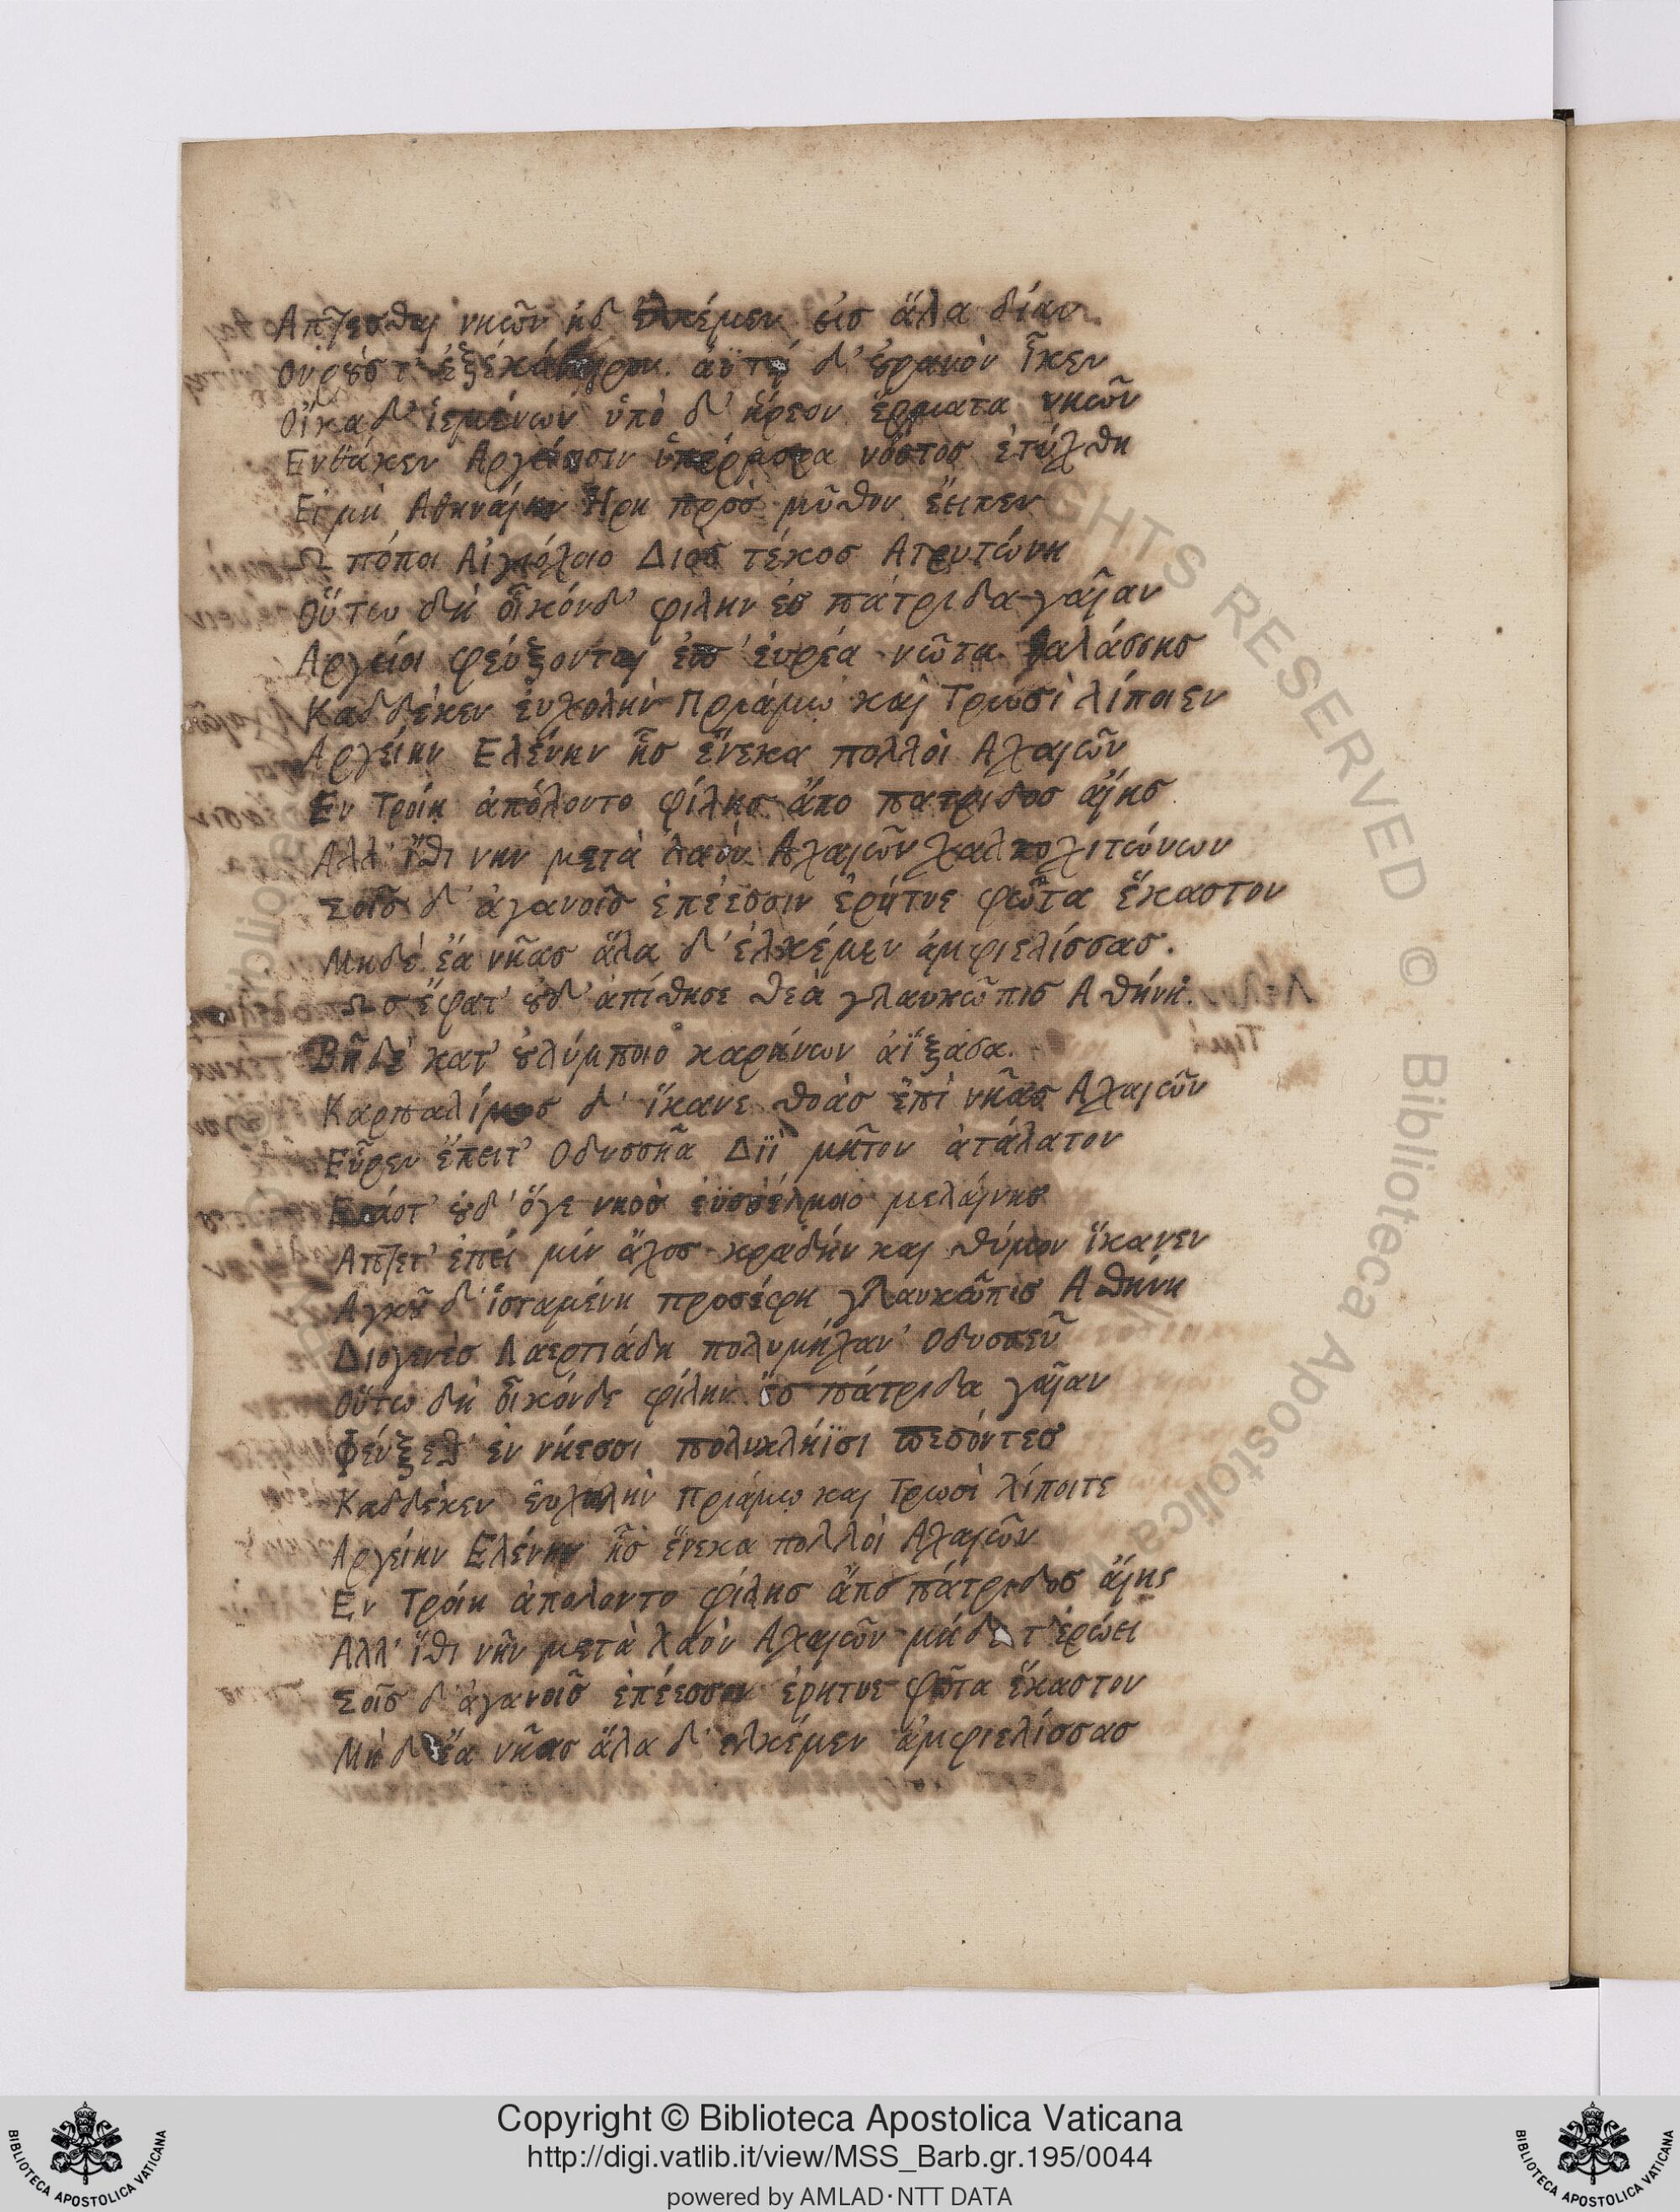 Απτεσθαι νηῶν ἠδ' ἑλκέμεν εἰσ ἅλα δίαν
Οὐρούσ τ' ἐξεκάθαιρον. ἀϋτὴ δ' οὐρανὸν ἷκεν
Οἴκαδ' ἱεμένων ὑπὸ δ' ἥρεον ἕρματα νηῶν
Ενθάκεν Αργείοισιν ὑπέρμορα νόστοσ ἐτύχθη
Εἰ μὴ Αθηναίην Ἥρη πρὸσ μῦθον ἔειπεν
Ω πόποι Αἰγιόχοιο Διὸσ τέκοσ Ατρυτώνη
Οὕτω δὴ οἶκόνδ' φιλην ἐσ πάτριδα γαῖαν
Αργεῖοι φεύξονται ἐπ' ἐυρέα νῶτα θαλάσσησ
Καδδέκεν ἐυχολὴν Πριάμω καὶ Τρωσὶ λίποιεν
Αργείην Ελένην ἧσ ἕνεκα πολλοὶ Αχαιῶν
Εν Τροίη ἀπόλοντο φίλησ ἄπο πατριδοσ αἴησ
Αλλ' ἴθι νην μετὰ λαὸν Αχαιῶν χαλκοχιτώνων
Σοῖσ δ' ἀγανοῖσ ἐπέεσσιν ἐρήτυε φῶτα ἕκαστον
Μηδέ ἔα νῆασ ἅλα δ' ἑλκέμεν ἀμφιελίσσασ.
Ωσ ἔφατ' οὐδ' ἀπίθησε θεὰ γλαυκῶπισ Αθήνη.
Βῆδὲ κατ' οὐλύμποιο καρήνων ἀΐξασα.
Καρπαλίμωσ δ' ἵκανε θοὰσ ἐπὶ νῆασ Αχαιῶν
Εὗρεν ἔπειτ' Οδυσσῆα Διῒ μῆτον ἀτάλατον
Εσάοτ' οὐδ' ὅγε νηὸσ ἐϋσσέλμοιο μελαίνησ
Απτετ' ἐπεί μιν ἄχοσ κραδὴν και θύμον ἵκανεν
Αγχοῦ δ' ἱσταμένη προσέφη γλαυκῶπισ Αθήνη
Διογενὲσ Λαερτιάδη πολυμήχαν' Οδυσσεῦ
Οὕτω δὴ οἶκόνδε φίλην ἐσ πάτριδα γαῖαν
Φεύξεσθ' ἐν νήεσσι πολυκλήϊσι πεσόντεσ
Καδδέκεν ἐυχολὴν Πριάμω και Τρωσὶ λίποιτε
Αργείην Ελένην ἧσ ἕνεκα πολλοὶ Αχαιῶν
Εν Τροίη ἀπολοντο φίλησ ἄπο πάτριδοσ αἴης
Αλλ' ἴθι νῆν μετὰ λαὸν Αχαιῶν μήδε τ' ἐρώει
Σοῖσ δ' ἀγανοῖσ ἐπέεσσιν ἐρητυε φῶτα ἕκαστον
Μὴδ' ἔα νῆασ ἅλα δ' ελκέμεν ἀμφιελίσσασ
RIGHTS RESERVED © Biblioteca Apostolica
Copyright © Biblioteca Apostolica Vaticana
http://digi.vatlib.it/view/MSS_Barb.gr.195/0044
powered by AMLAD·NTT DATA
BIBLIOTECA APOSTOLICA VATICANA
BIBLIOTECA APOSTOLICA VATICANA